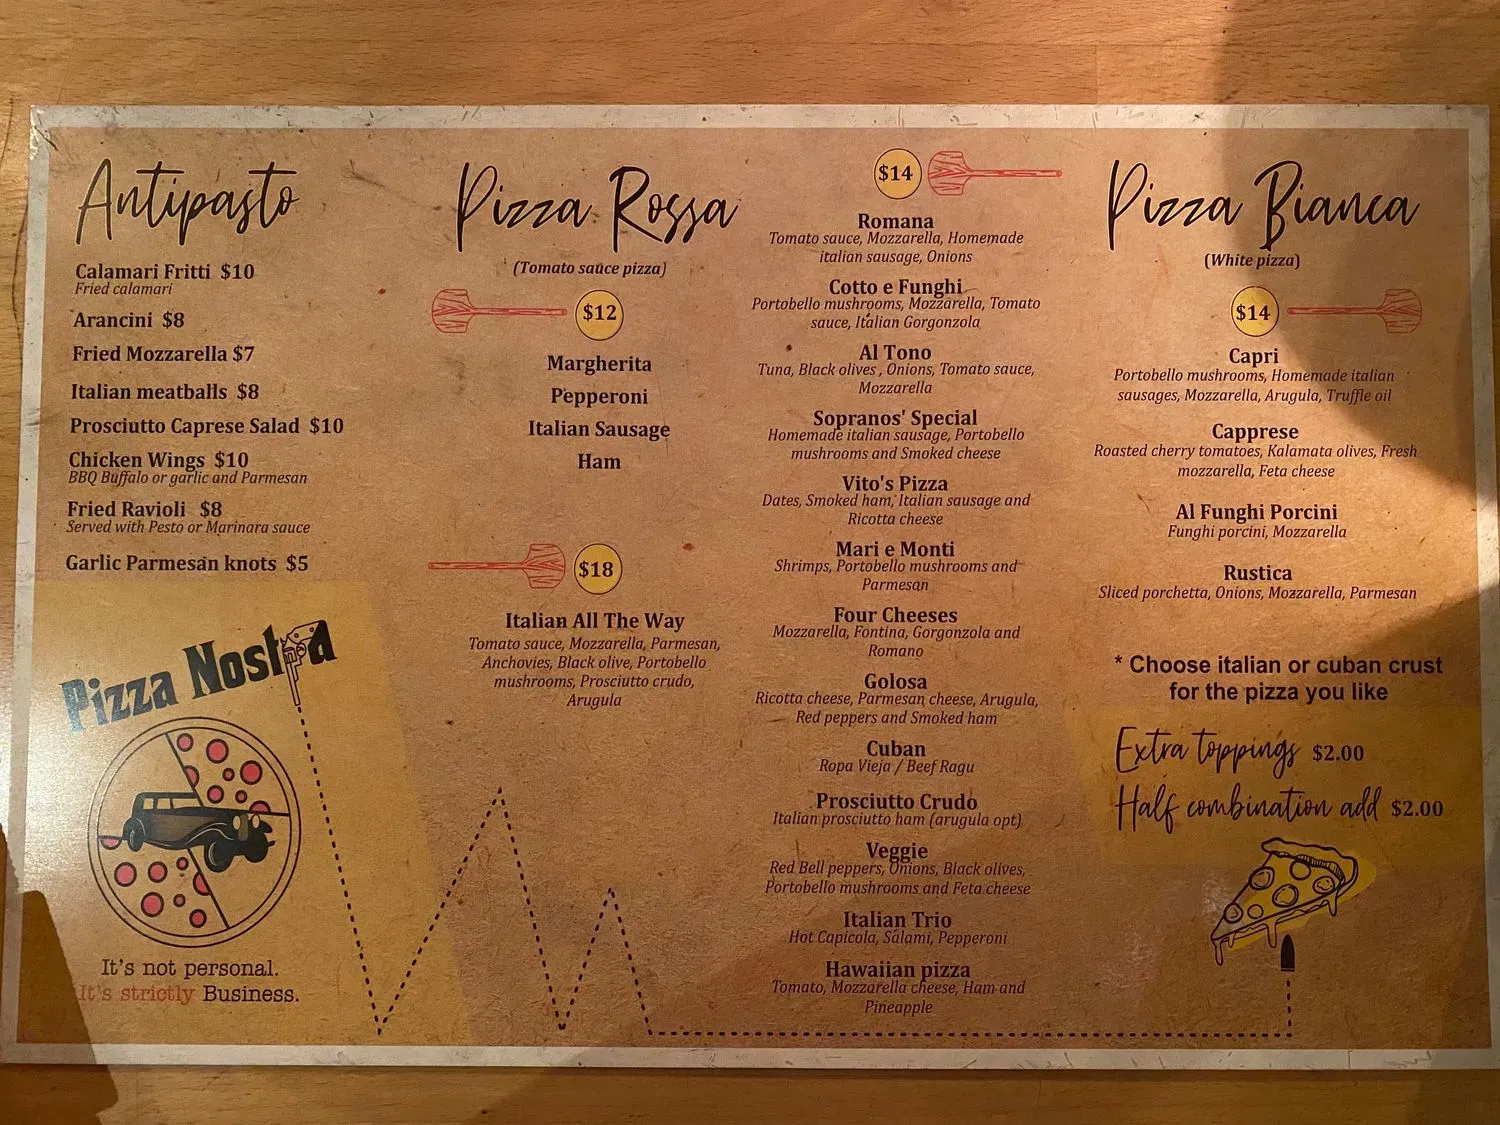 Antipasto
Calamari Fritti $10
Fried calamari
Arancini $8
Fried Mozzarella $7
Italian meatballs $8
Prosciutto Caprese Salad $10
Chicken Wings $10
BBQ Buffalo or garlic and Parmesan
Fried Ravioli $8
Served with Pesto or Marinara sauce
Garlic Parmesan knots $5
Pizza Nostra
It's not personal.
It's strictly Business.
Pizza Rossa
(Tomato sauce pizza)
$12
Margherita
Pepperoni
Italian Sausage
Ham
$18
Italian All The Way
Tomato sauce, Mozzarella, Parmesan,
Anchovies, Black olive, Portobello
mushrooms, Prosciutto crudo,
Arugula
$14
Romana
Tomato sauce, Mozzarella, Homemade
italian sausage, Onions
Cotto e Funghi
Portobello mushrooms, Mozzarella, Tomato
sauce, Italian Gorgonzola
Al Tono
Tuna, Black olives , Onions, Tomato sauce,
Mozzarella
Sopranos' Special
Homemade italian sausage, Portobello
mushrooms and Smoked cheese
Vito's Pizza
Dates, Smoked ham, Italian sausage and
Ricotta cheese
Mari e Monti
Shrimps, Portobello mushrooms and
Parmesan
Four Cheeses
Mozzarella, Fontina, Gorgonzola and
Romano
Golosa
Ricotta cheese, Parmesan cheese, Arugula,
Red peppers and Smoked ham
Cuban
Ropa Vieja / Beef Ragu
Prosciutto Crudo
Italian prosciutto ham (arugula opt)
Veggie
Red Bell peppers, Onions, Black olives,
Portobello mushrooms and Feta cheese
Italian Trio
Hot Capicola, Salami, Pepperoni
Hawaiian pizza
Tomato, Mozzarella cheese, Ham and
Pineapple
Pizza Bianca
(White pizza)
$14
Capri
Portobello mushrooms, Homemade italian
sausages, Mozzarella, Arugula, Truffle oil
Capprese
Roasted cherry tomatoes, Kalamata olives, Fresh
mozzarella, Feta cheese
Al Funghi Porcini
Funghi porcini, Mozzarella
Rustica
Sliced porchetta, Onions, Mozzarella, Parmesan
* Choose italian or cuban crust
for the pizza you like
Extra toppings $2.00
Half combination add $2.00